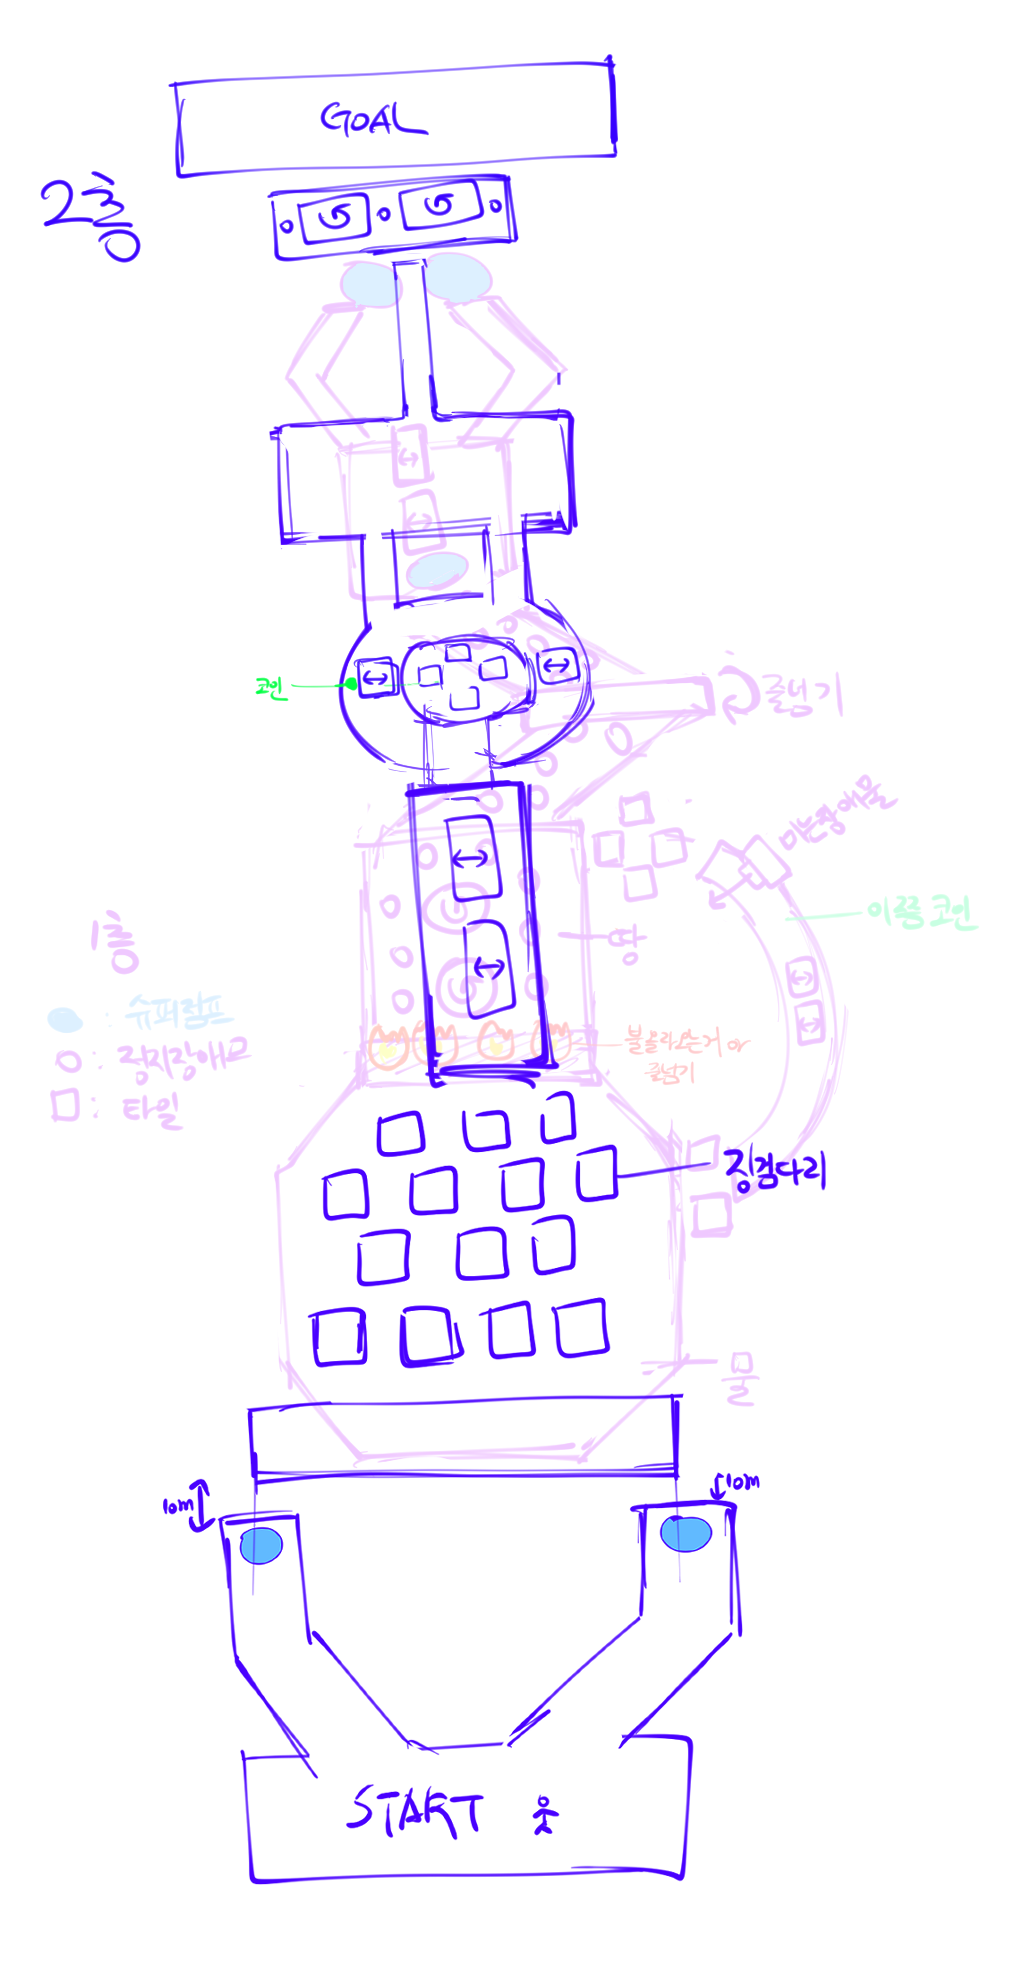 GOAL
2층
줄넘기
미는장애물
코인
이쯤 코인
1층
땅
: 슈퍼점프
: 정지장애물
: 타일
불올라오는거 or
줄넘기
징검다리
물
10m
10m
START